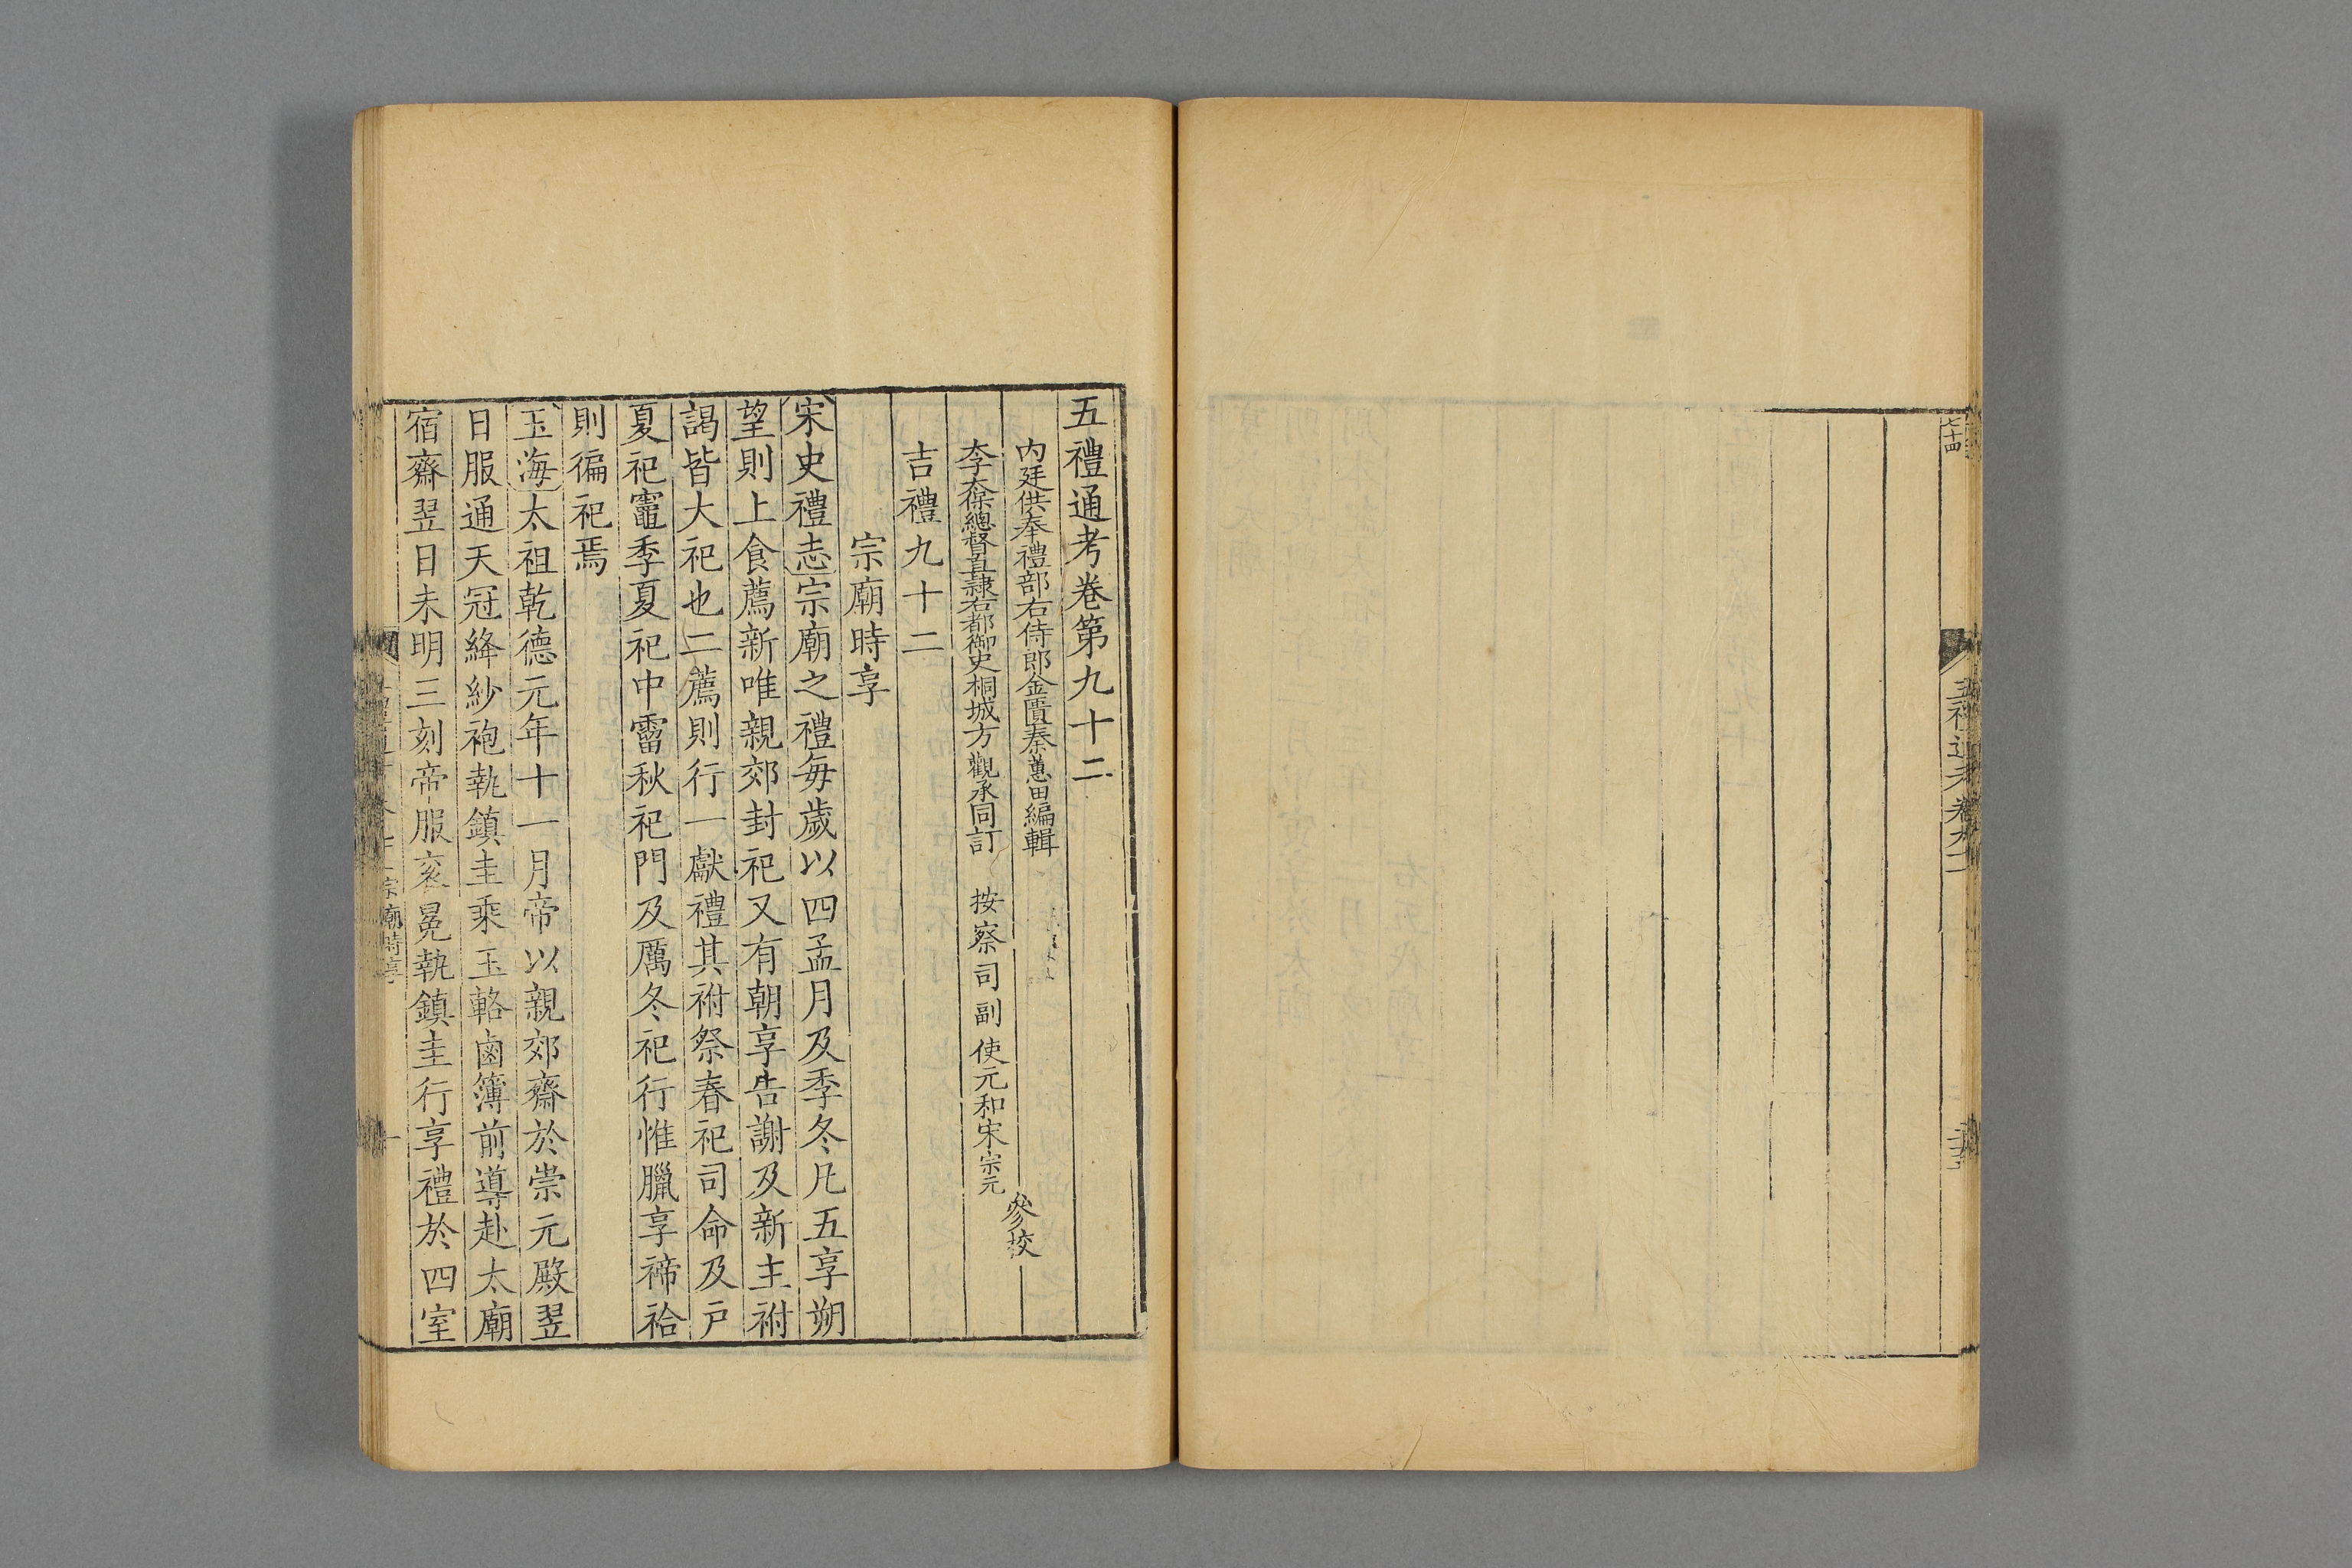 五禮通考卷第九十二
内廷供奉禮部右侍郎金匱秦蕙田編輯
太子太保總督直隷右都御史桐城方觀承同訂 按察司副使元和宋宗元
參校
吉禮九十二
宗廟時享
宋史禮志宗廟之禮每歲以四孟月及季冬凡五享朔
望則上食薦新唯親郊封祀又有朝享告謝及新主祔
謁皆大祀也二薦則行一獻禮其祔祭春祀司命及戸
夏祀竈季夏祀中霤秋祀門及厲冬祀行惟臘享禘祫
則徧祀焉
玉海太祖乾德元年十一月帝以親郊齋於崇元殿翌
日服通天冠絳紗袍執鎮圭乘玉輅鹵簿前導赴太廟
宿齋翌日未明三刻帝服袞冕執鎮圭行享禮於四室
宗廟時享
七十四
五禮通考卷九十一